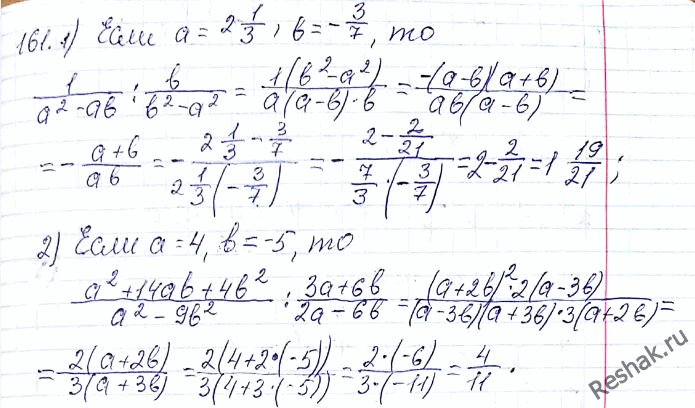 161. 1) Если a = 2 1/3, b = -3/7, то
1/(a² - ab) : b/(b² - a²) = 1(b² - a²)/(a(a-b)·b) = -(a-b)(a+b)/(ab(a-b)) =
= - (a+b)/(ab) = - (2 1/3 - 3/7)/(2 1/3(-3/7)) = - (2 - 2/21)/(7/3·(-3/7)) = 2 - 2/21 = 1 19/21;
2) Если a = 4, b = -5, то
(a² + 14ab + 4b²)/(a² - 9b²) : (3a + 6b)/(2a - 6b) = (a+2b)²·2(a-3b)/((a-3b)(a+3b)·3(a+2b)) =
= 2(a+2b)/(3(a+3b)) = 2(4+2·(-5))/(3(4+3·(-5))) = 2·(-6)/(3·(-11)) = 4/11.
Reshak.ru